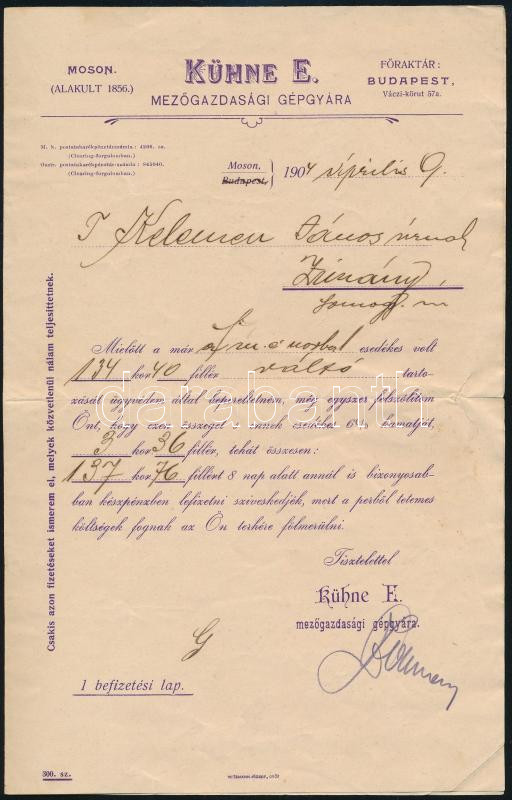 MOSON.
(ALAKULT 1856.)
KÜHNE E.
MEZŐGAZDASÁGI GÉPGYÁRA
FŐRAKTÁR:
BUDAPEST,
Váczi-körut 57a.
M. k. postatakarékpénztár-száma: 4206. sz.
(Clearing-forgalomban.)
Osztr. postatakarékpénztár-száma: 845040.
(Clearing-forgalomban.)
Moson,
Budapest,
1904 április 9.
T Kelemen János úrnak
Zimány,
Somogy m
Mielőtt a már esedékes volt
134 kor 40 fillér váltó tarto-
zását ügyvédem által bepereltetném, még egyszer felszólítom
Önt, hogy ezen összeget annak esedékes 6% kamatját,
3 kor 36 fillér, tehát összesen:
137 kor 76 fillért 8 nap alatt annál is bizonyosab-
ban készpénzben lefizetni sziveskedjék, mert a perből tetemes
költségek fognak az Ön terhére fölmerülni.
Tisztelettel
Kühne E.
mezőgazdasági gépgyára.
G
1 befizetési lap.
300. sz.
Csakis azon fizetéseket ismerem el, melyek közvetlenül nálam teljesittetnek.
darabanth.com